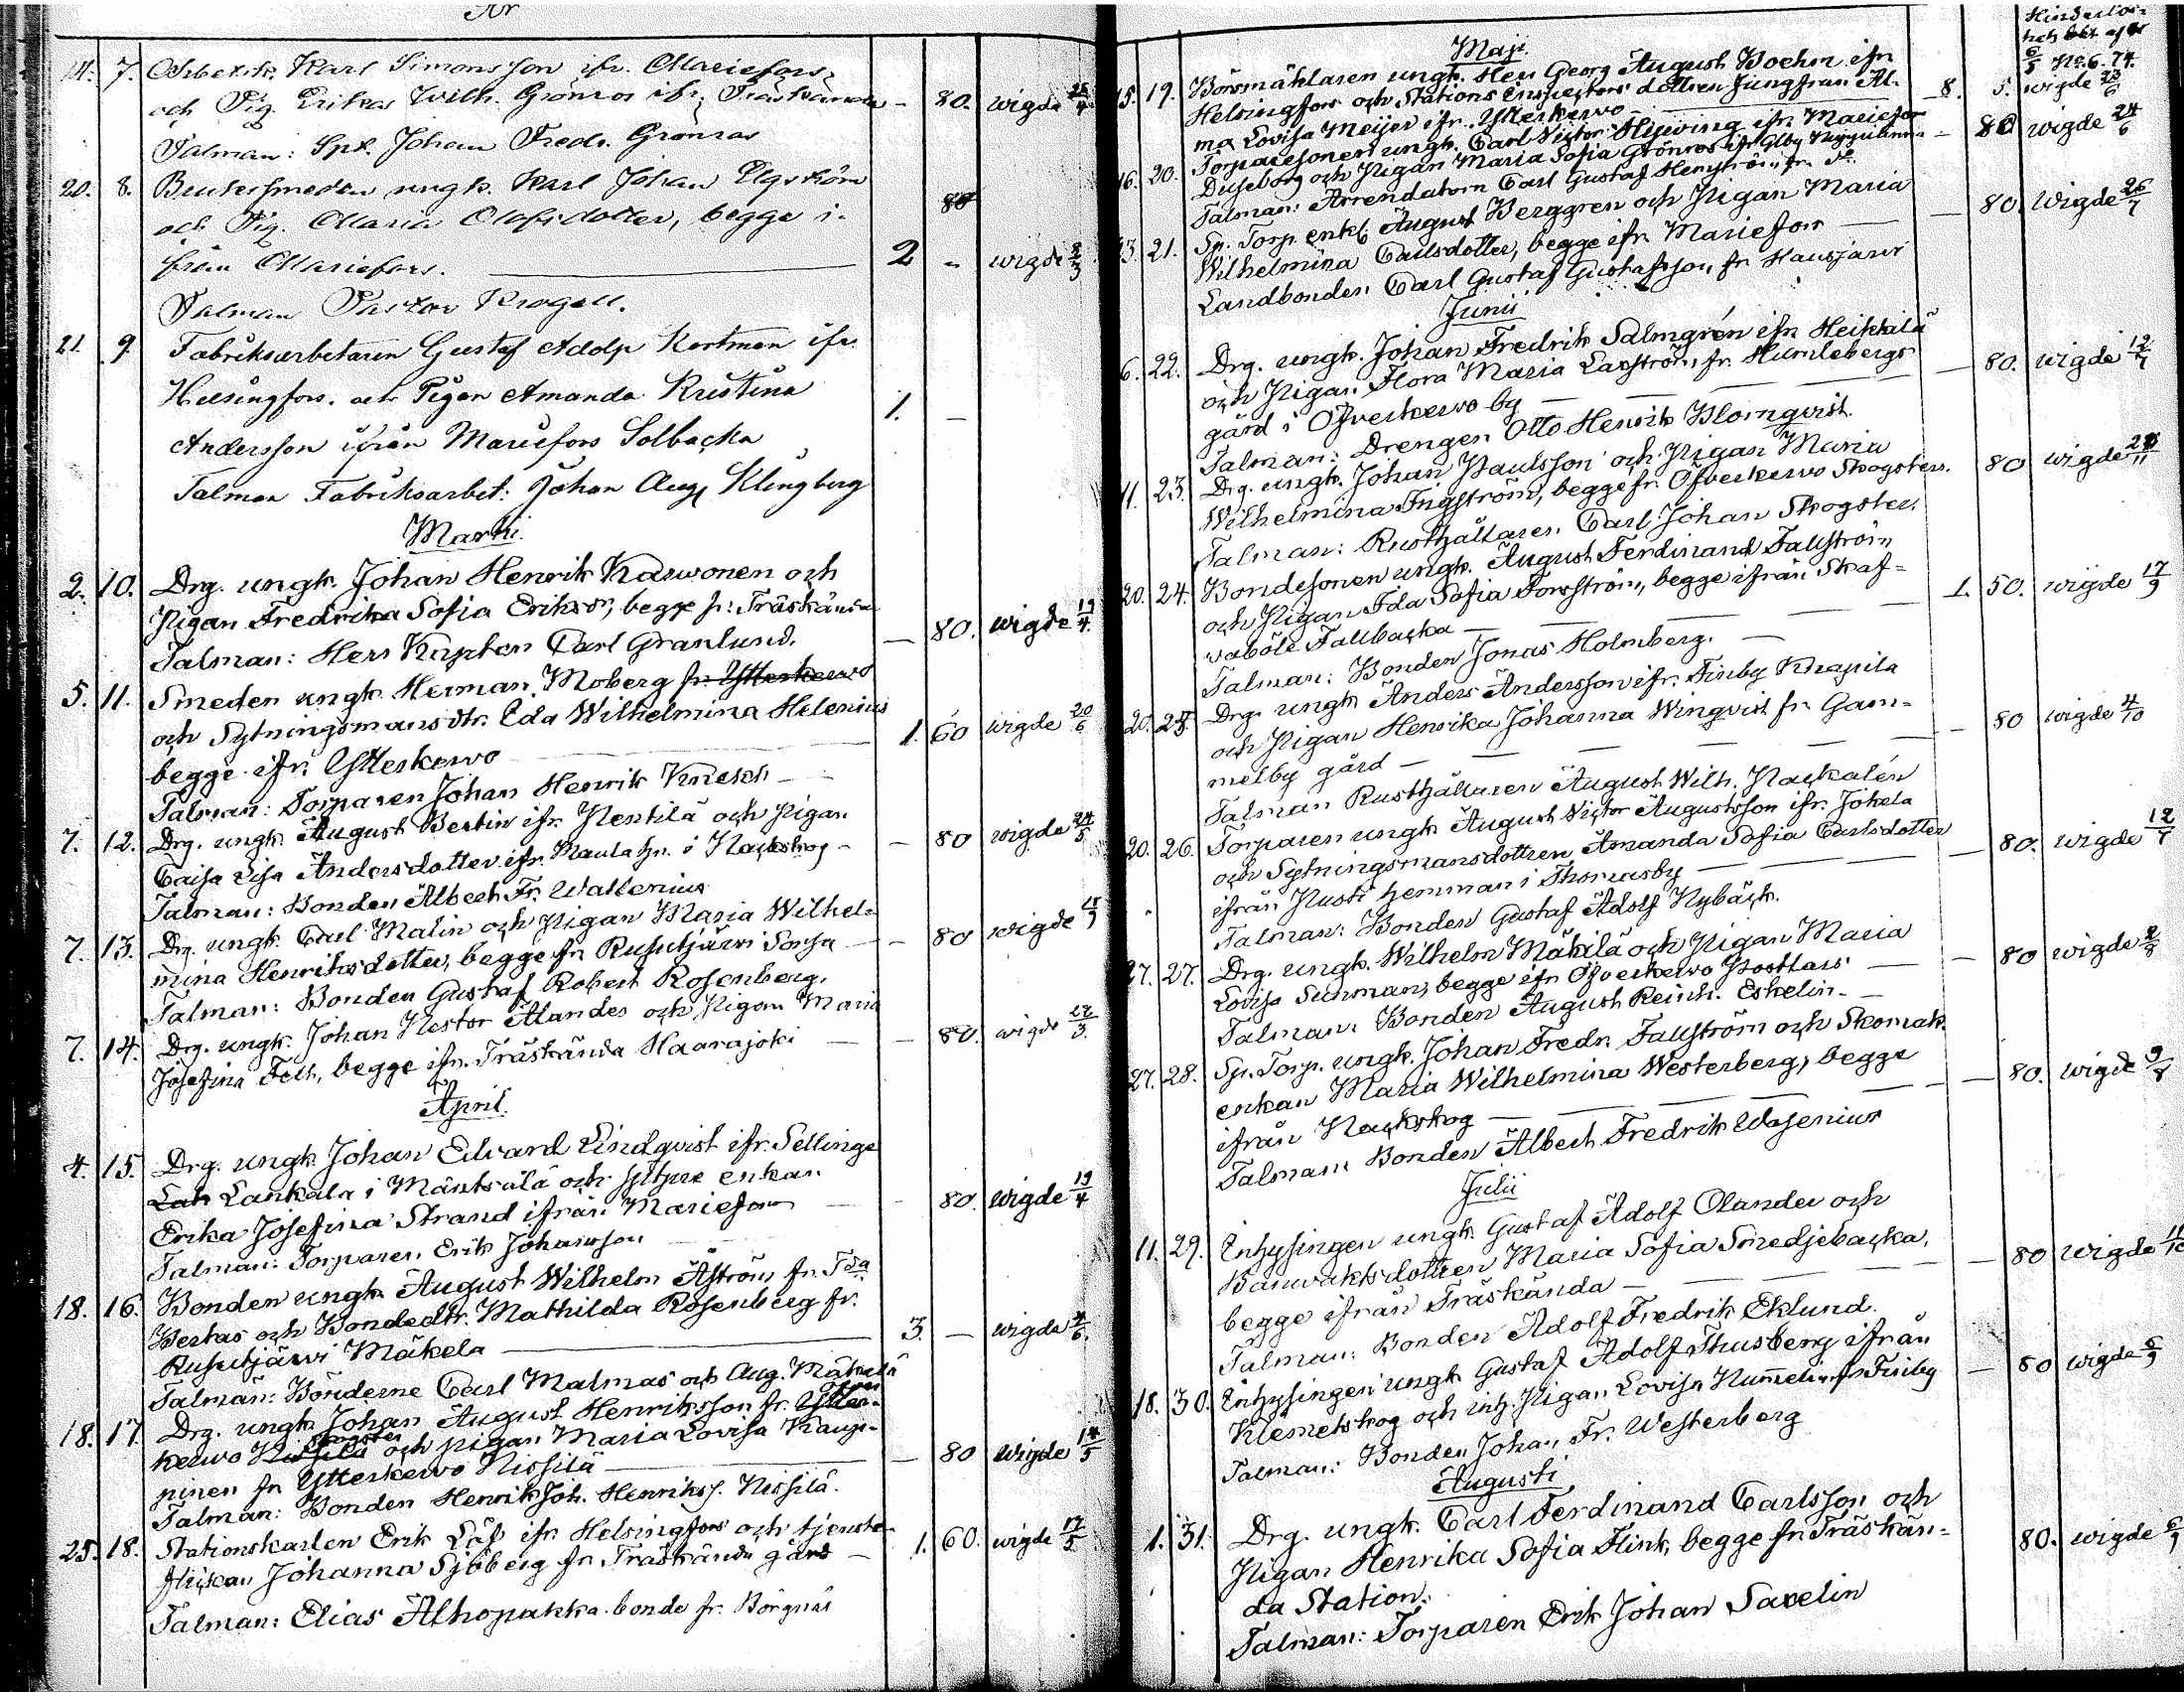 År
14. 7. Arbetsk. Karl Simonsson ifr. Mariefors
och Pig. Erika Wilh. Grönroos ifr. Träskända – 80. wigde 26/4
Talman: Spt. Johan Fredr. Grönroos
20. 8. Bruksmeden ungk. Karl Johan Elgström
och Pig. Maria Olofsdotter, begge i- 80
från Mariefors. 2 – wigde 8/3
Talman Pastor Krogell.
21. 9. Fabriksarbetaren Gustaf Adolf Kortman ifr.
Helsingfors och Pigan Amanda Kristina 1. –
Andersson ifrån Mariefors Solbacka
Talman Fabriksarbet: Johan Aug. Klingberg
Martii.
2. 10. Drg. ungk. Johan Henrik Karwonen och
Pigan Fredrika Sofia Eriksdr, begge fr. Träskända
Talman: Herr Kapten Carl Granlund. – 80. wigde 19/4
5. 11. Smeden ungk. Herman Moberg fr. Ytterkerwo
och Sytningsmansdtr. Eda Wilhelmina Helenius
begge ifr. Ytterkerwo 1. 60 wigde 20/6
Talman: Torparen Johan Henrik Knekt
7. 12. Drg. ungk. August Bertin ifr. Pentilä och Pigan
Caisa Lisa Andersdotter ifr. Raula hn. i Nackskog – 80 wigde 24/5
Talman: Bonden Albert Fr. Wallenius
7. 13. Drg. ungk. Carl Malin och Pigan Maria Wilhel-
mina Henriksdotter, begge fr. Rusutjärwi Sonsa – 80 wigde
Talman: Bonden Gustaf Robert Rosenberg.
7. 14. Drg. ungk. Johan Nestor Ålander och Pigan Maria
Josefina Felt, begge ifr. Träskända Haarajoki – 80. wigde 22/3.
April.
4. 15. Drg. ungk. Johan Edvard Lindqvist ifr. Sellinge
Lah Lankala i Mäntsälä och Sytare enkan
Erika Josefina Strand ifrån Mariefors – 80. wigde 19/4
Talman: Torparen Erik Johansson
18. 16. Bonden ungk. August Wilhelm Åström fr. Tda
Pertas och Bondedtr. Mathilda Rosenberg fr.
Rusutjärwi Mäkelä 3. – wigde 7/6.
Talmän: Bönderne Carl Malmas och Aug. Mäkelä
18. 17. Drg. ungk. Johan August Henriksson fr. Ytter-
kerwo Nissilä och pigan Maria Lovisa Kaup-
pinen fr. Ytterkerwo Nissilä – 80 wigde 14/5
Talman: Bonden Henrik Joh. Henrikss. Nissilä.
25. 18. Stationskarlen Erik Löf ifr. Helsingfors och tjenste-
flickan Johanna Sjöberg fr. Träskända gård – 1. 60. wigde 17/5
Talman: Elias Alhopakka bonde fr. Börgnäs
Maji.
15. 19. Börsmäklaren ungk. Herr Georg August Boehm ifr.
Helsingfors och Stations Inspectors dottren Jungfrun Al- 8. 5. wigde 23/6
ma Lovisa Meijer ifr. Ytterkerwo
16. 20. Torparesonen ungk. Carl Victor Hjerving ifr. Mariefors
och Pigan Maria Sofia Grönroos – 80 wigde 24/6
Talman: Arrendatorn Carl Gustaf Henström
23. 21. Sp. Torp. enkl. August Berggren och Pigan Maria
Wilhelmina Carlsdotter, begge ifr. Mariefors – 80. wigde 26/7
Landbonden Carl Gustaf Gustafsson fr. Hausjärwi
Junii
6. 22. Drg. ungk. Johan Fredrik Salmgrén ifr. Heikkilä
och Pigan Flora Maria Laxström fr. Humlebergs
gård i Öfverkerwo by – 80. wigde 12/7
Talman: Drengen Otto Henrik Blomqvist.
11. 23. Drg. ungk. Johan Paulsson och Pigan Maria
Wilhelmina Engström, begge fr. Öfverkerwo Skogsters. 80 wigde
Talman: Rusthållaren Carl Johan Skogster.
20. 24. Bondesonen ungk. August Ferdinand Fallström
och Pigan Ida Sofia Forsström, begge ifrån Skaf-
waböle Fallbacka 1. 50. wigde 17/9
Talman: Bonden Jonas Holmberg.
20. 25. Drg. ungk. Anders Andersson ifr. Finby Knapila
och Pigan Henrika Johanna Winqvist fr. Gam-
melby gård – 80 wigde 4/10
Talman Rusthållaren August Wilh. Nackalén
20. 26. Torparen ungk. August Victor Augustsson ifr. Jokela
och Sytningsmansdottren Amanda Sofia Carlsdotter
ifrån Rusti hemman i Thomasby – 80. wigde 12/7
Talman: Bonden Gustaf Adolf Nybäck.
27. 27. Drg. ungk. Wilhelm Mäkilä och Pigan Maria
Lovisa Sunman, begge ifr. Öfverkerwo Postlars – 80 wigde
Talman: Bonden August Reinh. Eskelin.
27. 28. Sp. Torp. ungk. Johan Fredr. Fallström och Skomak.
enkan Maria Wilhelmina Westerberg, begge
ifrån Nackskog – 80. wigde 9/8
Talman Bonden Albert Fredrik Wasenius
Julii
11. 29. Inhysingen ungk. Gustaf Adolf Olander och
Banwaktsdottren Maria Sofia Smedjebacka,
begge ifrån Träskända – 80 wigde
Talman: Bonden Adolf Fredrik Eklund.
18. 30. Inhysingen ungk. Gustaf Adolf Thusberg ifrån
Klemetskog och inh. Pigan Lovisa Nummelin fr. Finby – 80 wigde 6/9
Talman: Bonden Johan Fr. Westerberg
Augusti
1. 31. Drg. ungk. Carl Ferdinand Carlsson och
Pigan Henrika Sofia Flink, begge fr. Träskän-
da Station. 80. wigde
Talman: Torparen Erik Johan Saxelin